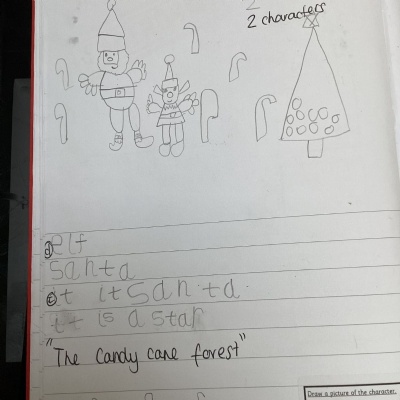 2
2 characters
elf
santa
it it san ta
it is a star
"The Candy cane forest"
Draw a picture of the character.